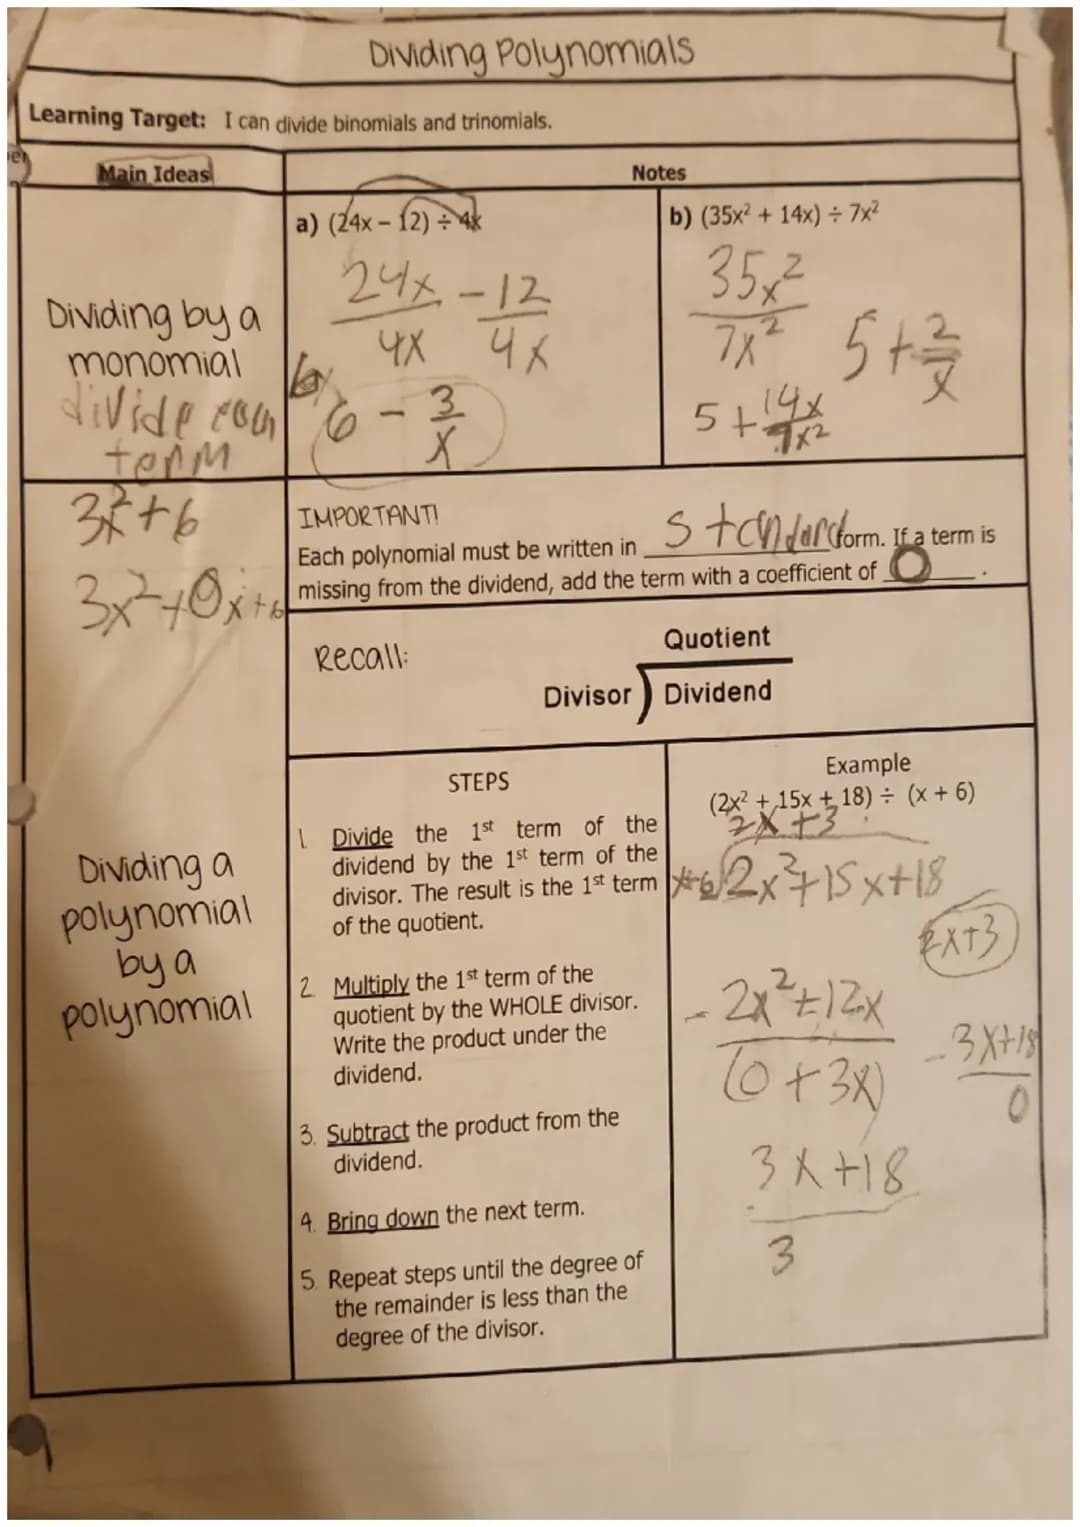 Dividing Polynomials
Learning Target: I can divide binomials and trinomials.
Main Ideas
Notes
a) (24x – 12) ÷ 4x
24x - 12
4x 4x
6 - 3
x
b) (35x² + 14x) ÷ 7x²
35x²
7x²
5 + 2
x
5 + 14x
7x²
Dividing by a
monomial
divide each
term
3x²+6
3x²+0x+6
IMPORTANT!
Each polynomial must be written in standard form. If a term is
missing from the dividend, add the term with a coefficient of 0.
Recall:
Quotient
Divisor Dividend
Dividing a
polynomial
by a
polynomial
STEPS
1. Divide the 1st term of the
dividend by the 1st term of the
divisor. The result is the 1st term
of the quotient.
2. Multiply the 1st term of the
quotient by the WHOLE divisor.
Write the product under the
dividend.
3. Subtract the product from the
dividend.
4. Bring down the next term.
5. Repeat steps until the degree of
the remainder is less than the
degree of the divisor.
Example
(2x² + 15x + 18) ÷ (x + 6)
2x+3
x+6 2x²+15x+18
2x+3
- 2x²+12x
(0+3x)
- 3x+18
0
3x+18
3